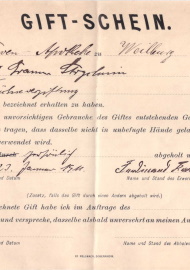 GIFT-SCHEIN.
Apotheke zu Weilburg
Gramm Strychnin
bezeichnet erhalten zu haben.
unvorsichtigen Gebrauche des Giftes entstehenden Ge
tragen, dass dasselbe nicht in unbefugte Hände gela
verwendet wird.
persönlich abgeholt
Januar Ferdinand
nd Datum Name und Stand des Erwer
(Zusatz, falls das Gift durch einen Andern abgeholt wird.)
hnete Gift habe ich im Auftrage des
und verspreche, dasselbe alsbald unversehrt an meinen Au
nd Datum Name und Stand des Abhole